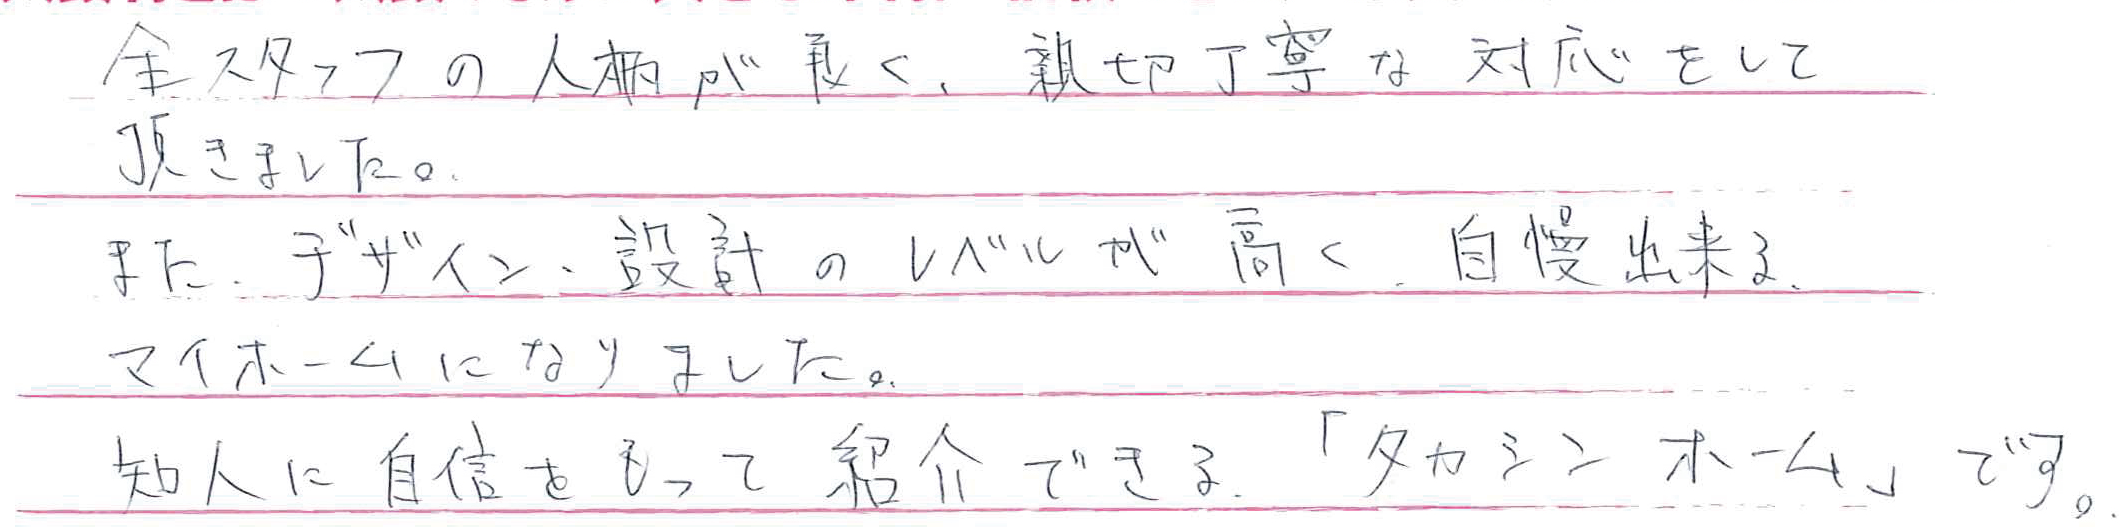 全スタッフの人柄が良く、親切丁寧な対応をして
頂きました。
また、デザイン、設計のレベルが高く、自慢出来る、
マイホームになりました。
知人に自信をもって紹介できる、「タカシンホーム」です。